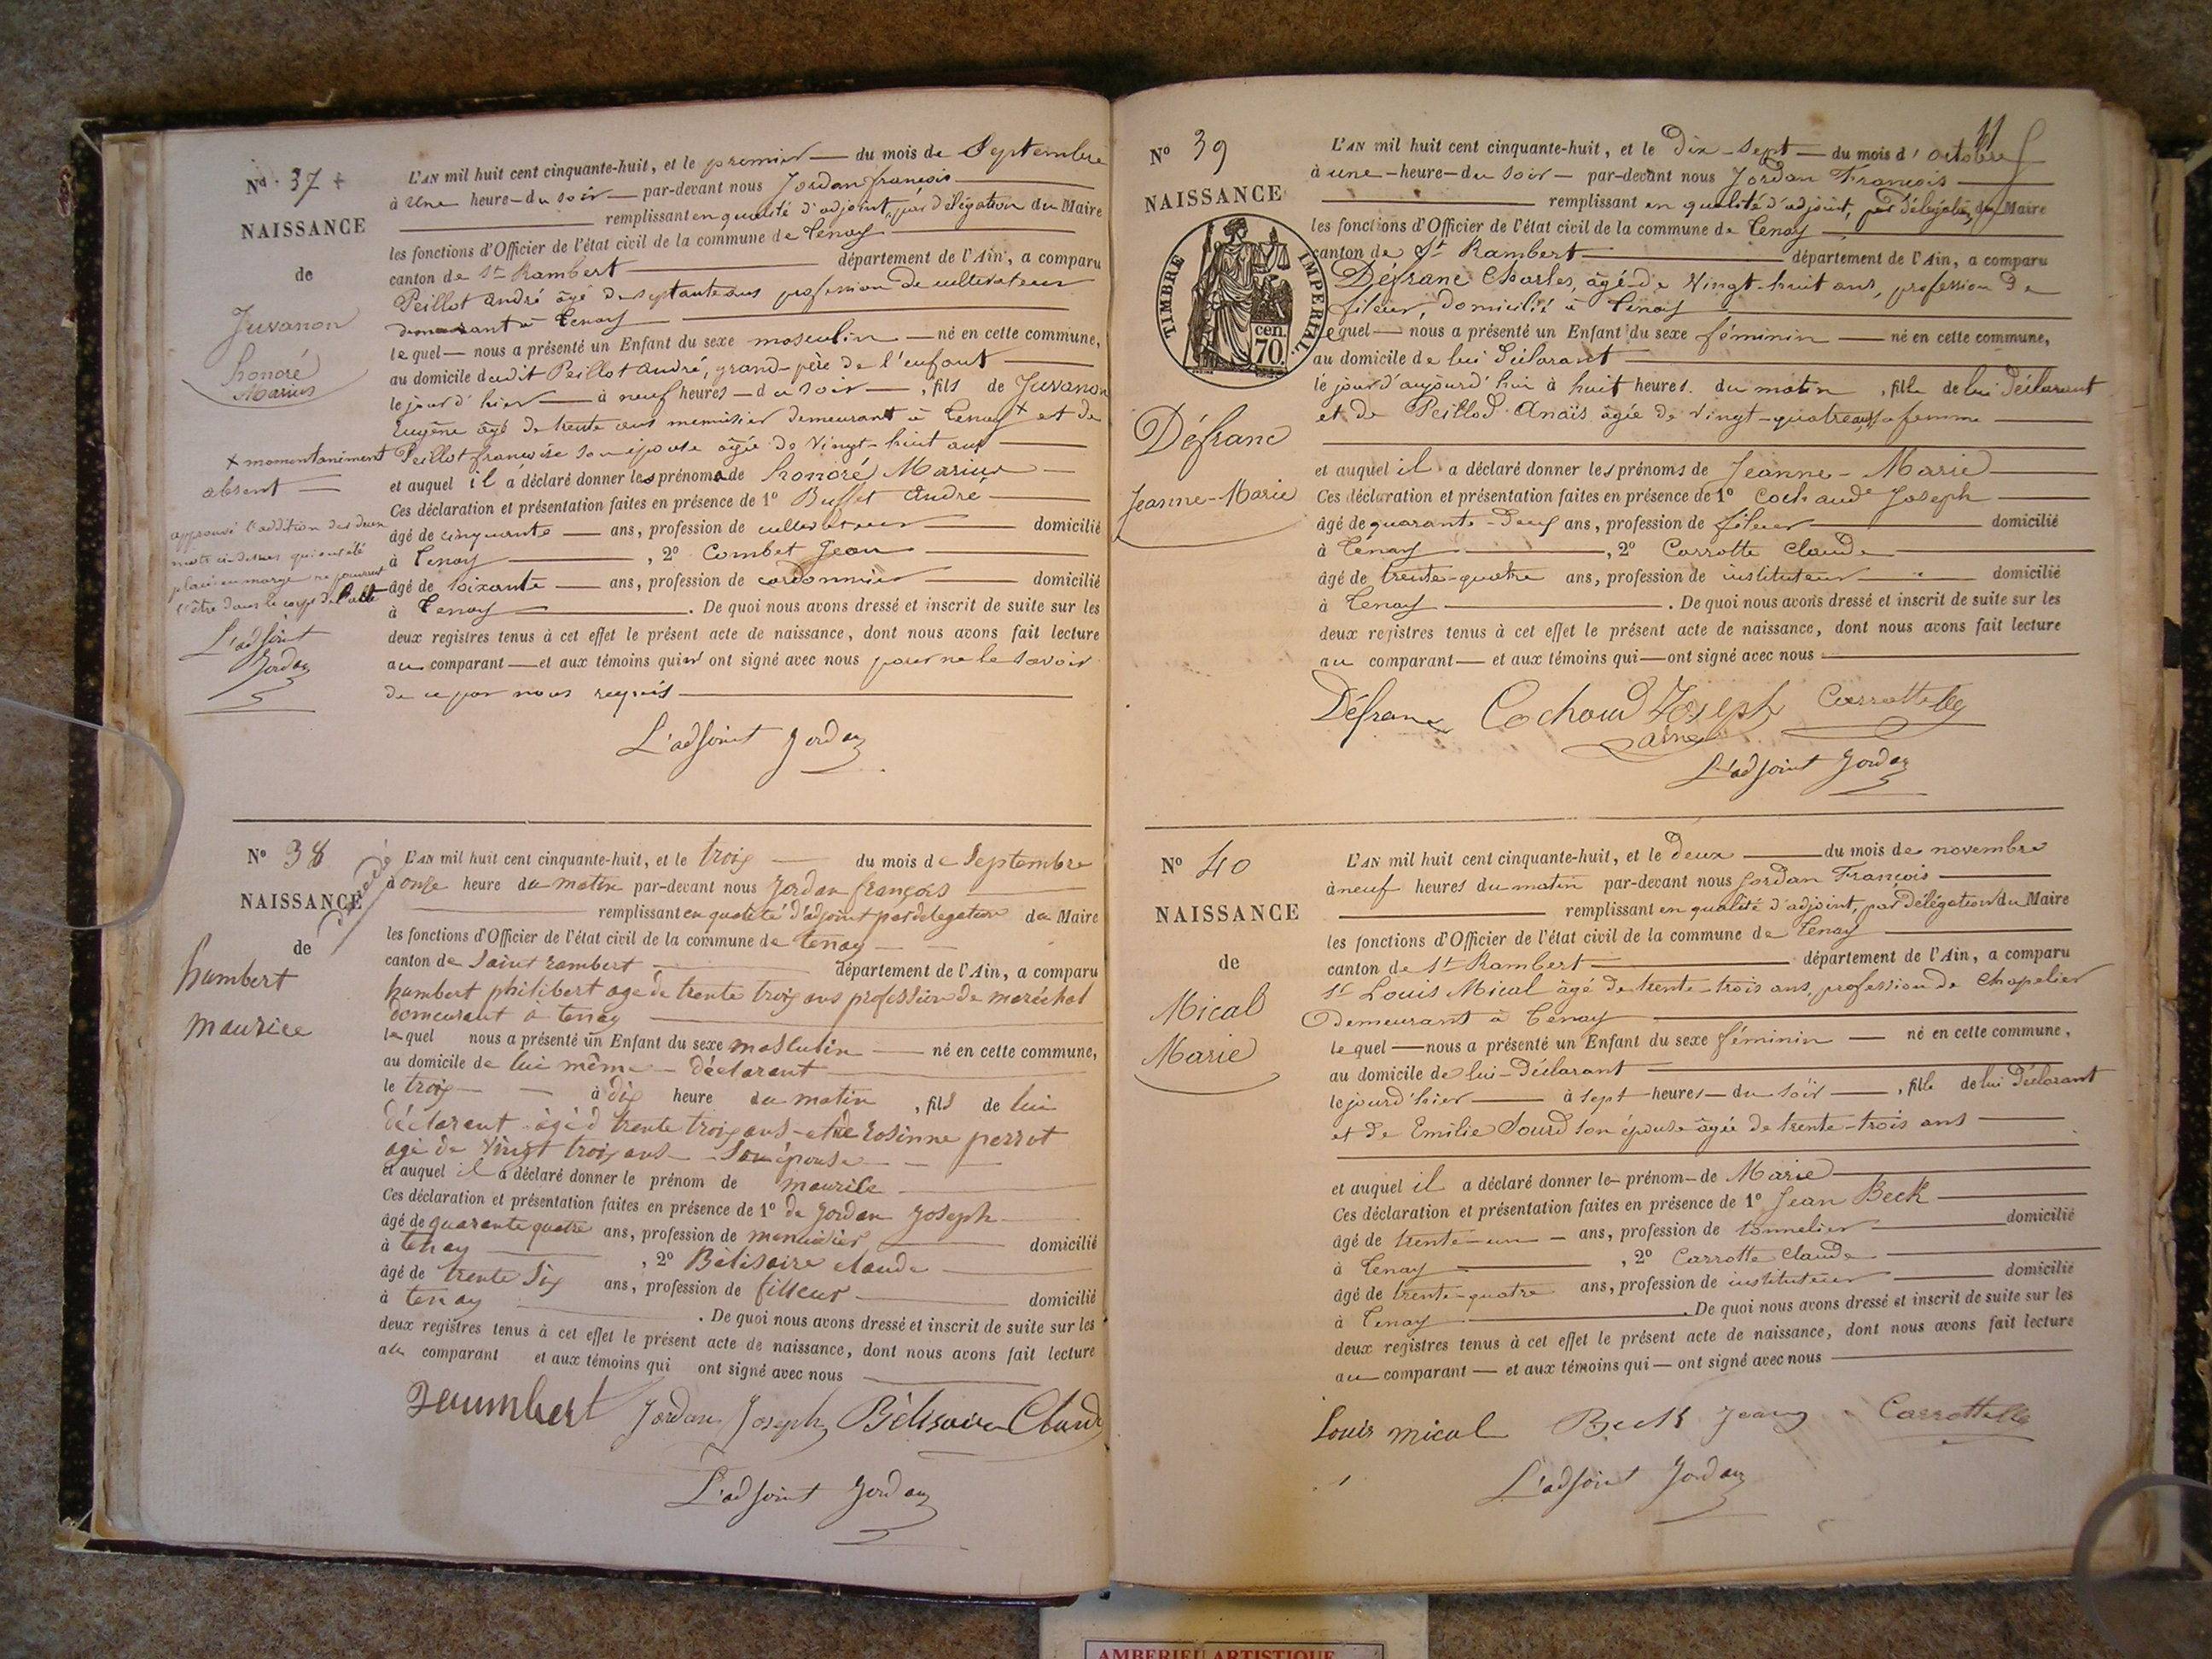 Nº 37
NAISSANCE
de
Juvanon
honoré
Marius
x momentanément
absent
approuvé l'addition des deux
mots ci-dessus qui ont été
placés en marge ne pouvant
l'être dans le corps de l'acte
L'adjoint
Jordan
L'AN mil huit cent cinquante-huit, et le premier du mois de Septembre
à une heure du soir par-devant nous Jordan françois
remplissant en qualité d'adjoint, par délégation du Maire
les fonctions d'Officier de l'état civil de la commune de Tenay
canton de St Rambert département de l'Ain, a comparu
Peillot andré âgé de septante ans profession de cultivateur
demeurant à Tenay
lequel nous a présenté un Enfant du sexe masculin né en cette commune,
au domicile dudit Peillot andré, grand-père de l'enfant
le jour d'hier à neuf heures du soir, fils de Juvanon
Eugène âgé de trente ans menuisier demeurant à Tenay x et de
Peillot françoise son épouse âgée de vingt-huit ans
et auquel il a déclaré donner les prénoms de honoré Marius
Ces déclaration et présentation faites en présence de 1º Buffet andré
âgé de cinquante ans, profession de cultivateur domicilié
à Tenay, 2º Combet Jean
âgé de soixante ans, profession de cordonnier domicilié
à Tenay. De quoi nous avons dressé et inscrit de suite sur les
deux registres tenus à cet effet le présent acte de naissance, dont nous avons fait lecture
au comparant et aux témoins qui n'ont signé avec nous pour ne le savoir
de ce par nous requis
L'adjoint Jordan
Nº 38
NAISSANCE
de
humbert
maurice
L'AN mil huit cent cinquante-huit, et le trois du mois de Septembre
à onze heure du matin par-devant nous Jordan françois
remplissant en qualité d'adjoint par delegation du Maire
les fonctions d'Officier de l'état civil de la commune de tenay
canton de Saint rambert département de l'Ain, a comparu
humbert philibert age de trente trois ans profession de maréchal
demeurant a tenay
lequel nous a présenté un Enfant du sexe masculin né en cette commune,
au domicile de lui même déclarant
le trois à dix heure du matin, fils de lui
déclarent âgé d trente trois ans et de rosinne perrot
age de vingt trois ans Son épouse
et auquel il a déclaré donner le prénom de maurice
Ces déclaration et présentation faites en présence de 1º de Jordan Joseph
âgé de quarante quatre ans, profession de menuisier domicilié
à tenay, 2º Bélisaire claude
âgé de trente six ans, profession de fileur domicilié
à tenay. De quoi nous avons dressé et inscrit de suite sur les
deux registres tenus à cet effet le présent acte de naissance, dont nous avons fait lecture
au comparant et aux témoins qui ont signé avec nous
humbert Jordan Joseph Bélisaire Claude
L'adjoint Jordan
Nº 39
NAISSANCE
TIMBRE IMPERIAL
70 cen.
Défranc
Jeanne-Marie
11
L'AN mil huit cent cinquante-huit, et le Dix-Sept du mois d'octobre
à une heure du soir par-devant nous Jordan François
remplissant en qualité d'adjoint, par Délégation du Maire
les fonctions d'Officier de l'état civil de la commune de Tenay
canton de St Rambert département de l'Ain, a comparu
Défranc Charles, âgé de Vingt-huit ans, profession de
fileur, domicilié à Tenay
lequel nous a présenté un Enfant du sexe féminin né en cette commune,
au domicile de lui Déclarant
le jour d'aujourd'hui à huit heures du matin, fille de lui Déclarant
et de Peillod Anaïs âgée de vingt-quatre ans, sa femme
et auquel il a déclaré donner les prénoms de Jeanne-Marie
Ces déclaration et présentation faites en présence de 1º Cochaud Joseph
âgé de quarante-deux ans, profession de fileur domicilié
à Tenay, 2º Carrotte Claude
âgé de trente-quatre ans, profession de instituteur domicilié
à Tenay. De quoi nous avons dressé et inscrit de suite sur les
deux registres tenus à cet effet le présent acte de naissance, dont nous avons fait lecture
au comparant et aux témoins qui ont signé avec nous
Défranc Cochoud Joseph Carrotte
aîné
L'adjoint Jordan
Nº 40
NAISSANCE
de
Mical
Marie
L'AN mil huit cent cinquante-huit, et le deux du mois de novembre
à neuf heures du matin par-devant nous Jordan François
remplissant en qualité d'adjoint, par Délégation du Maire
les fonctions d'Officier de l'état civil de la commune de Tenay
canton de St Rambert département de l'Ain, a comparu
Sr Louis Mical âgé de trente-trois ans, profession de Chapelier
Demeurant à Tenay
lequel nous a présenté un Enfant du sexe féminin né en cette commune,
au domicile de lui-Déclarant
le jour d'hier à sept heures du soir, fille de lui Déclarant
et de Emilie Sourd son épouse âgée de trente-trois ans
et auquel il a déclaré donner le prénom de Marie
Ces déclaration et présentation faites en présence de 1º Jean Beck
âgé de trente-un ans, profession de tonnelier domicilié
à Tenay, 2º Carrotte Claude
âgé de trente-quatre ans, profession de instituteur domicilié
à Tenay. De quoi nous avons dressé et inscrit de suite sur les
deux registres tenus à cet effet le présent acte de naissance, dont nous avons fait lecture
au comparant et aux témoins qui ont signé avec nous
Louis mical Beck Jean Carrotte
L'adjoint Jordan
AMBERIEU ARTISTIQUE